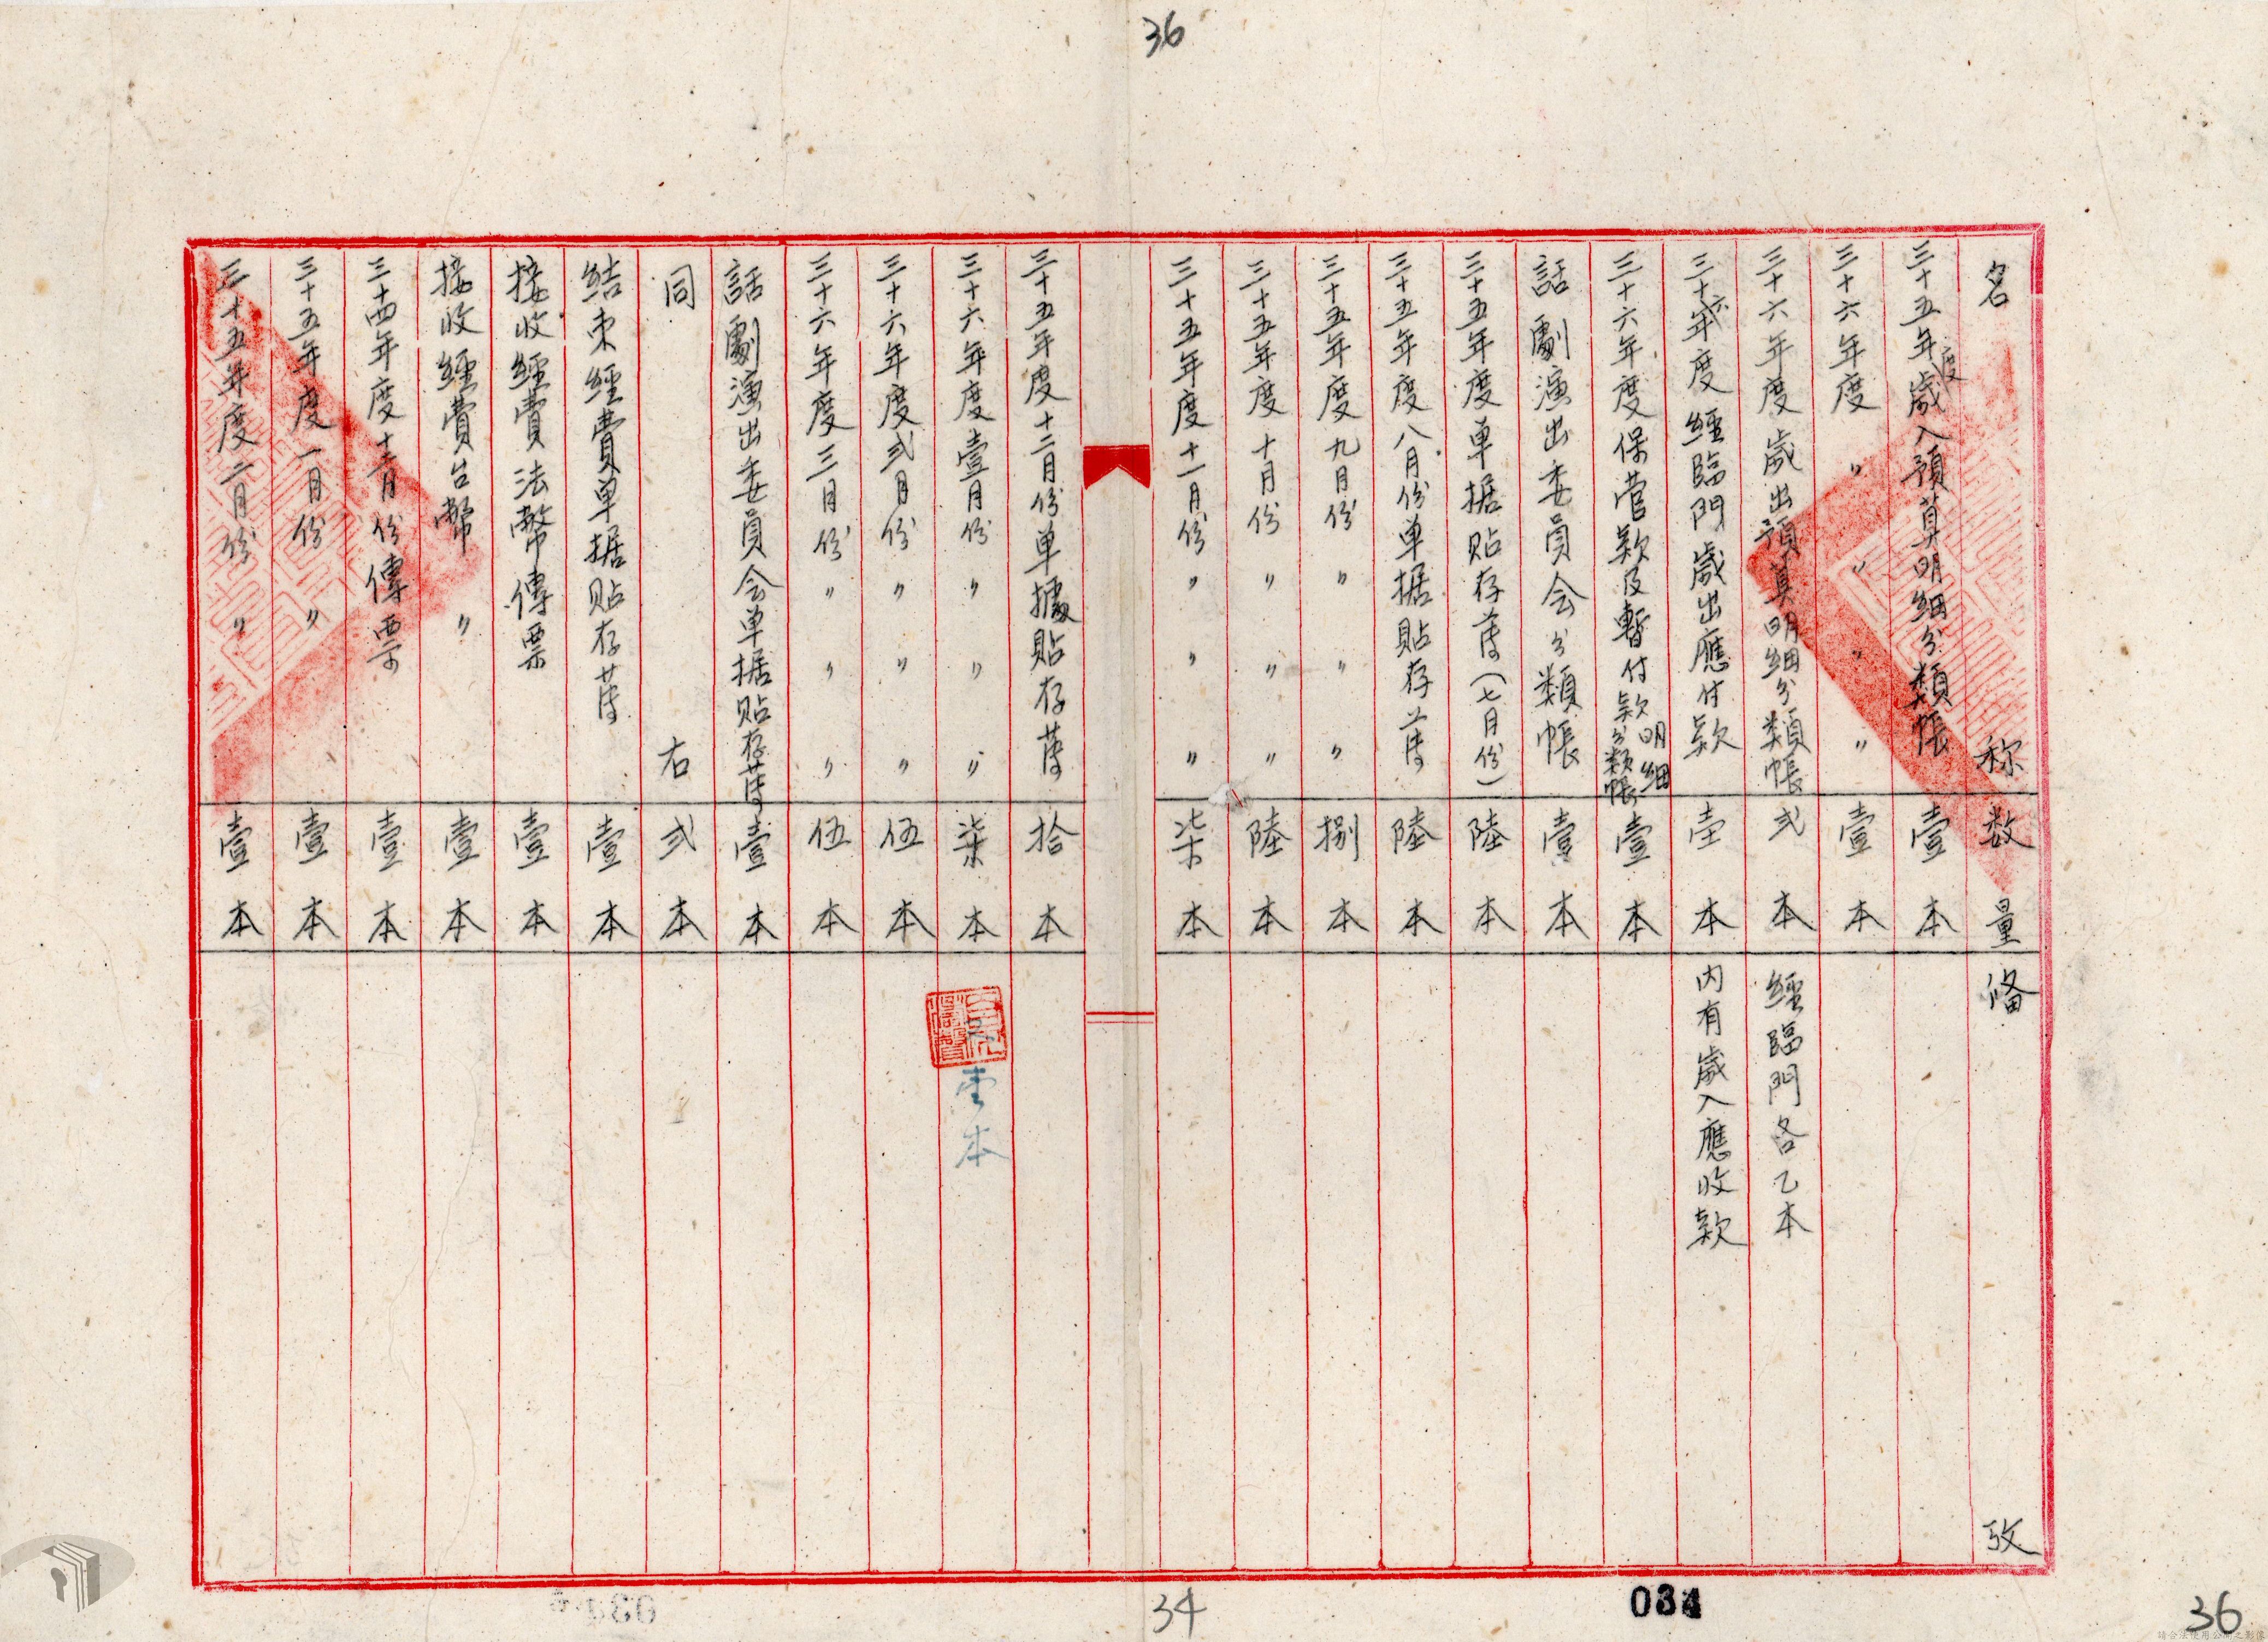 36
名称 数量 備攷
三十五年度歲入預算明細分類帳 壹本
三十六年度 〃 〃 〃 〃 壹本
三十六年度歲出預算明細分類帳 弍本 經臨門各乙本
三十六年度經臨門歲出應付款 壹本 內有歲入應收款
三十六年度保管款及暫付款明細分類帳 壹本
話劇演出委員会分類帳 壹本
三十五年度单据貼存薄(七月份) 陸本
三十五年度八月份单据貼存薄 陸本
三十五年度九月份 〃 〃 〃 捌本
三十五年度十月份 〃 〃 〃 陸本
三十五年度十一月份 〃 〃 〃 柒本
三十五年度十二月份单據貼存薄 拾本
三十六年度壹月份 〃 〃 〃 柒本 壹本
三十六年度弍月份 〃 〃 〃 伍本
三十六年度三月份 〃 〃 〃 伍本
話劇演出委員会单据貼存薄 壹本
同右 弍本
結束經費单据貼存薄 壹本
接收經費法幣傳票 壹本
接收經費台幣 〃 壹本
三十四年度十二月份傳票 壹本
三十五年度一月份 〃 壹本
三十五年度二月份 〃 壹本
34
034
36